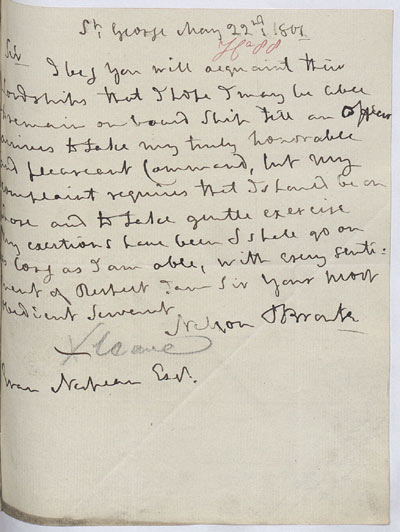 St George May 22nd 1801
Ha 88
Sir
I beg You will acquaint their
Lordships that I hope I may be able
to remain on board Ship till an Officer
arrives to take my truly honorable
and pleasant Command, but my
complaint requires that I should be on
shore and to take gentle exercise
My exertions have been I shall go on
as long as I am able, with every senti-
ment of Respect I am Sir Your most
obedient Servant
Nelson & Bronte
Evan Nepean Esqr.